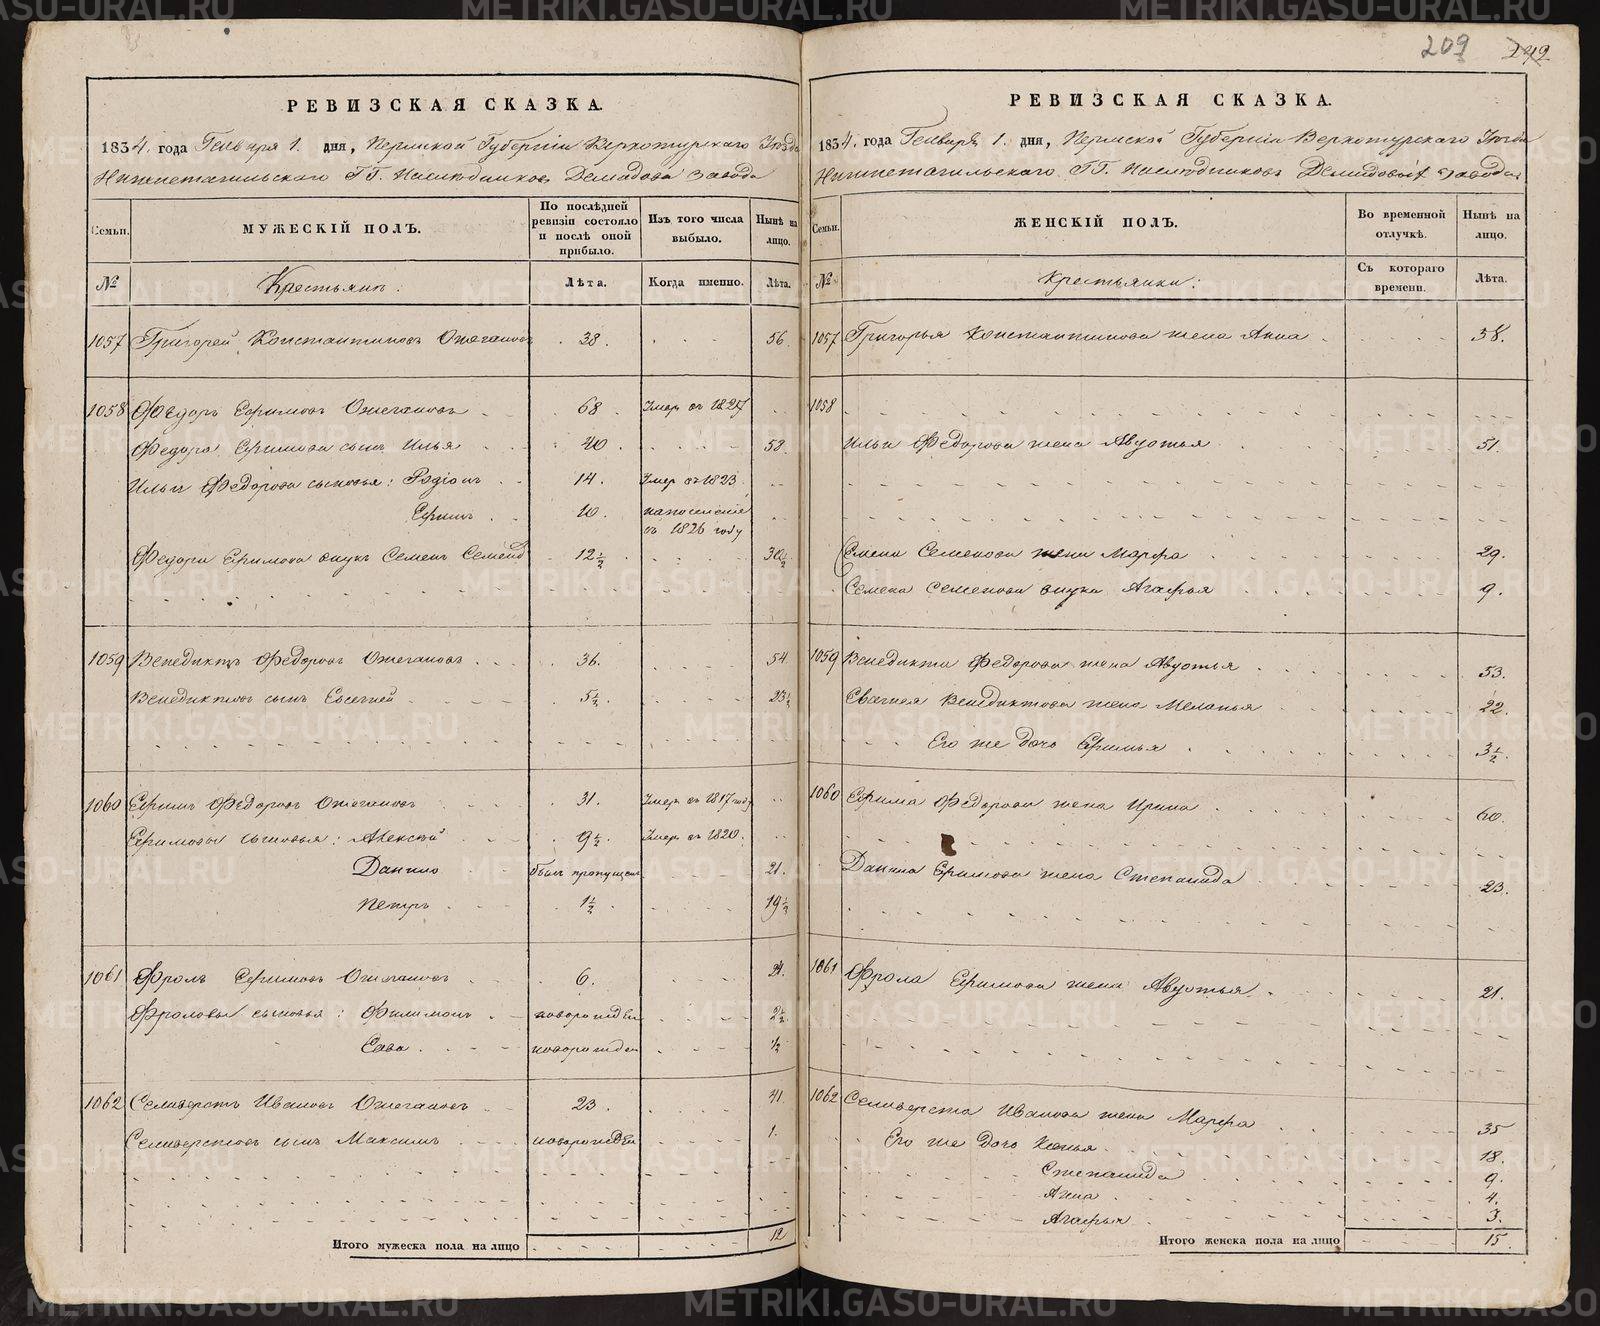 209 242
РЕВИЗСКАЯ СКАЗКА.
1834. года Генваря 1. дня, Пермской Губерніи Верхотурскаго Уѣзда
Нижнетагильскаго ГГ. Наслѣдниковъ Демидова завода
Семьи.
МУЖЕСКІЙ ПОЛЪ.
По послѣдней ревизіи состояло и послѣ оной прибыло.
Изъ того числа выбыло.
Нынѣ на лицо.
№
Крестьянъ:
Лѣта.
Когда именно.
Лѣта.
1057 Григорей Константиновъ Ожегановъ 38. 56.
1058 Федоръ Ефимовъ Ожегановъ 68. Умеръ въ 1827
Федора Ефимова сынъ Илья 40. 58.
Ильи Федорова сыновья: Родіонъ 14. Умер въ 1823
Ефимъ 10. на поселеніе въ 1826 году
Федора Ефимова внукъ Семенъ Семенов 12½ 30½
1059 Венедиктъ Федоровъ Ожегановъ 36. 54.
Венедиктовъ сынъ Евсегней 5½ 23½
1060 Ефимъ Федоровъ Ожегановъ 31. Умеръ въ 1817 году
Ефимовы сыновья: Алексѣй 9½ Умеръ въ 1820.
Данило былъ пропущен 21.
Петръ 1½ 19½
1061 Фролъ Ефимовъ Ожегановъ 6. 24.
Фроловы сыновья: Филимонъ новорожден 2½
Сава новорожден ½
1062 Селиверстъ Ивановъ Ожегановъ 23. 41
Селиверстовъ сынъ Максимъ новорожден 1.
Итого мужеска пола на лицо 12
РЕВИЗСКАЯ СКАЗКА.
1834. года Генваря 1. дня, Пермской Губерніи Верхотурскаго Уѣзда
Нижнетагильскаго ГГ. Наслѣдниковъ Демидовыхъ завода
Семьи.
ЖЕНСКІЙ ПОЛЪ.
Во временной отлучкѣ.
Нынѣ на лицо.
№
Крестьянки:
Съ котораго времени.
Лѣта.
1057 Григорья Константинова жена Анна 58.
1058
Ильи Федорова жена Авдотья 51.
Семена Семенова жена Марфа 29.
Семена Семенова внука Агафья 9.
1059 Венедикта Федорова жена Авдотья 53.
Евсегнея Венедиктова жена Меланья 22.
Его же дочь Ефимья 3½
1060 Ефима Федорова жена Ирина 60.
Данила Ефимова жена Степанида 23.
1061 Фрола Ефимова жена Авдотья 21.
1062 Селиверста Иванова жена Марфа 35
Его же дочь Ксенья 18.
Степанида 9.
Анна 4.
Агафья 3.
Итого женска пола на лицо 15.
METRIKI.GASO-URAL.RU